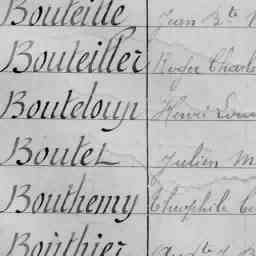 Bouteille Jean Bte
Bouteiller Roger Charle
Bouteloup Henri Loui
Boutet Julien M
Bouthemy Théophile
Bouthier